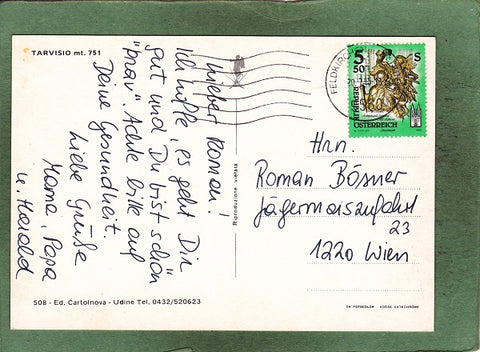 TARVISIO mt. 751
Lieber Roman!
Ich hoffe, es geht Dir
gut und Du bist schön
"brav". Achte bitte auf
Deine Gesundheit.
Liebe Grüße
Mama, Papa
u. Harald
Riproduzione vietata
508 - Ed. Cartolnova - Udine Tel. 0432/520623
FELDKIRCH
5
50
S
REPUBLIK
ÖSTERREICH
Hrn.
Roman Bösner
Jägermaiszufahrt
23
1220 Wien